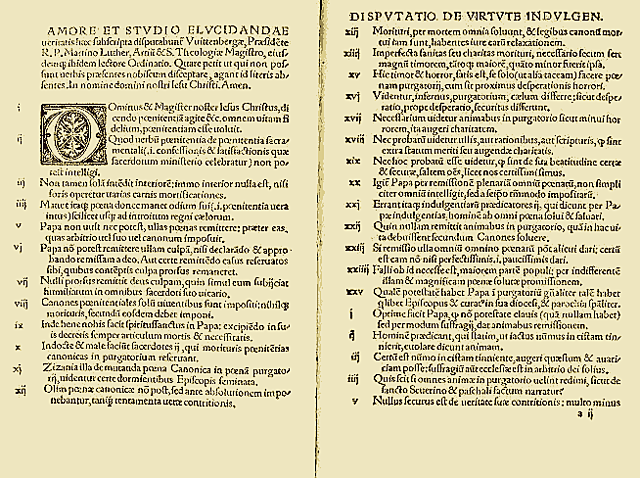 AMORE ET STVDIO ELVCIDANDAE
ueritatis hæc subscripta disputabunť Vuittenbergæ, Præsidēte
R.P. Martino Luther, Artiū & S. Theologiæ Magistro, eius/
demq; ibidem lectore Ordinario. Quare petit ut qui non pos/
sunt uerbis præsentes nobiscum disceptare, agant id literis ab/
sentes. In nomine domini nostri Iesu Christi. Amen.
i Dominus & Magister noster Iesus Christus, di
cendo pœnitentiā agite &c. omnem uitam fi
delium, pœnitentiam esse uoluit.
ij Quod uerbū pœnitentia de pœnitentia sacra
mentali (.i. confessionis & satisfactionis quæ
sacerdotum ministerio celebratur) non po
test intelligi.
iij Non tamen solā intēdit interiorē: immo interior nulla est, nisi
foris operetur uarias carnis mortificationes.
iiij Manet itaq; pœna donec manet odium sui (.i. pœnitentia vera
intus) scilicet usq; ad introitum regni cælorum.
v Papa non uult nec potest, ullas pœnas remittere: præter eas,
quas arbitrio uel suo uel canonum imposuit.
vj Papa nō potest remittere ullam culpā, nisi declarādo & appro/
bando remissam a deo. Aut certe remittēdo casus reseruatos
sibi, quibus contēptis culpa prorsus remaneret.
vij Nulli prorsus remittit deus culpam, quin simul eum subijciat
humiliatum in omnibus sacerdoti suo uicario.
viij Canones pœnitentiales solū uiuentibus sunt impositi: nihilq;
morituris, secundū eosdem debet imponi.
ix Inde bene nobis facit spiritussanctus in Papa: excipiēdo in su/
is decretis semper articulum mortis & necessitatis.
x Indocte & male faciūt sacerdotes ij, qui morituris pœnitētias
canonicas in purgatorium reseruant.
xj Zizania illa de mutanda pœna Canonica in pœnā purgato/
rij, uidentur certe dormientibus Episcopis seminata.
xij Olim pœnæ canonicæ nō post, sed ante absolutionem impo/
nebantur, tanq̄ tentamenta ueræ contritionis.
DISPVTATIO. DE VIRTVTE INDVLGEN.
xiij Morituri, per mortem omnia soluunt, & legibus canonū mor/
tui iam sunt, habentes iure earū relaxationem.
xiiij Imperfecta sanitas seu charitas morituri, necessario secum fert
magnū timorem, tātoq; maiorē, quāto minor fuerit ipsa.
xv Hic timor & horror, satis est, se solo (ut alia taceam) facere pœ/
nam purgatorij, cum sit proximus desperationis horrori.
xvj Videntur, infernus, purgatorium, cælum differre: sicut despe/
ratio, prope desperatio, securitas differunt.
xvij Necessarium uidetur animabus in purgatorio sicut minui hor
rorem, ita augeri charitatem.
xviij Nec probatū uidetur ullis, aut rationibus, aut scripturis, q̄ sint
extra statum meriti seu augendæ charitatis.
xix Nec hoc probatū esse uidetur, q̄ sint de sua beatitudine certæ
& securæ, saltem oēs, licet nos certissimi simus.
xx Igiť Papa per remissionē plenariā omniū pœnarū, non simpli
citer omniū intelligit, sed a seipō mmodo impositarū.
xxj Errant itaq; indulgentiarū prædicatores ij, qui dicunt per Pa/
pæ indulgentias, hominē ab omni pœna solui & saluari.
xxij Quin nullam remittit animabus in purgatorio, quā in hac ui/
ta debuissent secundum Canones soluere.
xxiij Si remissio ulla omniū omnino pœnarū pōt alicui dari; certū
est eam nō nisi perfectissimis, .i. paucissimis dari.
xxiiij Falli ob id necesse est, maiorem partē populi; per indifferentē
illam & magnificam pœnæ solutæ promissionem.
xxv Qualē potestatē habet Papa ī purgatoriū gn̄aliter talē habet
q̄libet Episcopus & curatꝰ in sua diocesi, & parochia sp̄āliter.
j Optime facit Papa, q̄ nō potestate clauis (quā nullam habet)
sed per modum suffragij, dat animabus remissionem.
ij Hominē prædicant, qui statim, ut iactus nūmus in cistam tin/
nierit, euolare dicunt animam.
iij Certū est nūmo in cistam tinniente, augeri quæstum & auari/
ciam posse: suffragiū aūt ecclesiæ est in arbitrio dei solius.
iiij Quis scit si omnes animæ in purgatorio uelint redimi, sicut de
sancto Seuerino & paschali factum narratur.
v Nullus securus est de ueritate suæ contritionis: multo minus
a ij